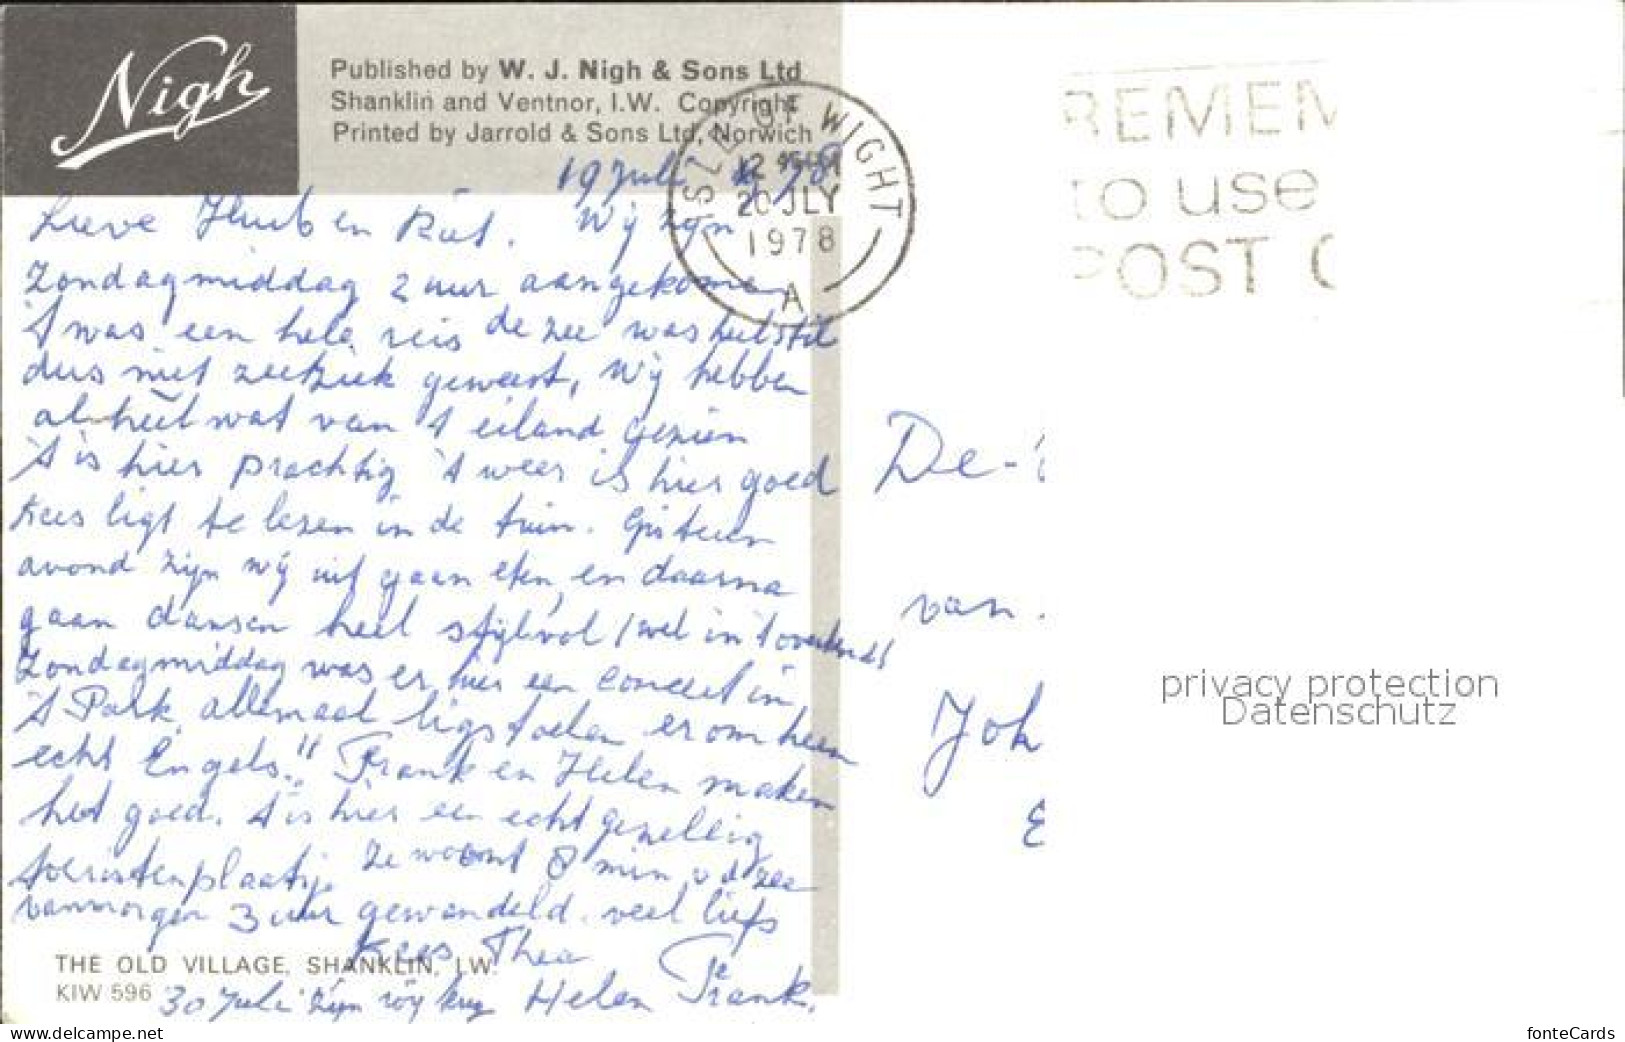 Nigh
Published by W. J. Nigh & Sons Ltd
Shanklin and Ventnor, I.W. Copyright
Printed by Jarrold & Sons Ltd, Norwich
ISLE OF WIGHT
20 JLY
1978
A
REMEM
to use
POST
19 Juli 78
Lieve Huub en Riet. Wij zijn
Zondagmiddag 2 uur aangekomen
't was een hele reis de zee was heel stil
dus niet zeeziek geweest, wij hebben
al heel wat van 't eiland gezien
't is hier prachtig 't weer is hier goed
Kees ligt te lezen in de tuin. Gisteren
avond zijn wij uit gaan eten, en daarna
gaan dansen heel stijlvol
Zondagmiddag was er hier een concert in
't Park, allemaal ligstoelen er om heen
echt Engels." Frank en Helen maken
het goed. 't is hier een echt gezellig
toeristenplaatsje. Ze woont 8 min v d zee
vanmorgen 3 uur gewandeld. veel liefs
Kees Thea
THE OLD VILLAGE. SHANKLIN, I.W.
KIW 596
30 Juli zijn wij Helen Frank.
De-
van
Joh
E
privacy protection
Datenschutz
www.delcampe.net
fonteCards